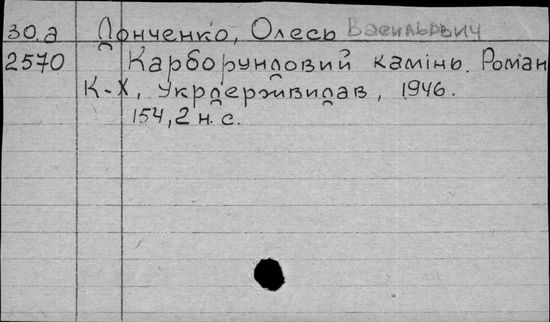 30.а Донченко, Олесь Васильович
2570 Карборундовий камінь. Роман
К-Х, Укрдержвидав, 1946.
154, 2 н. с.